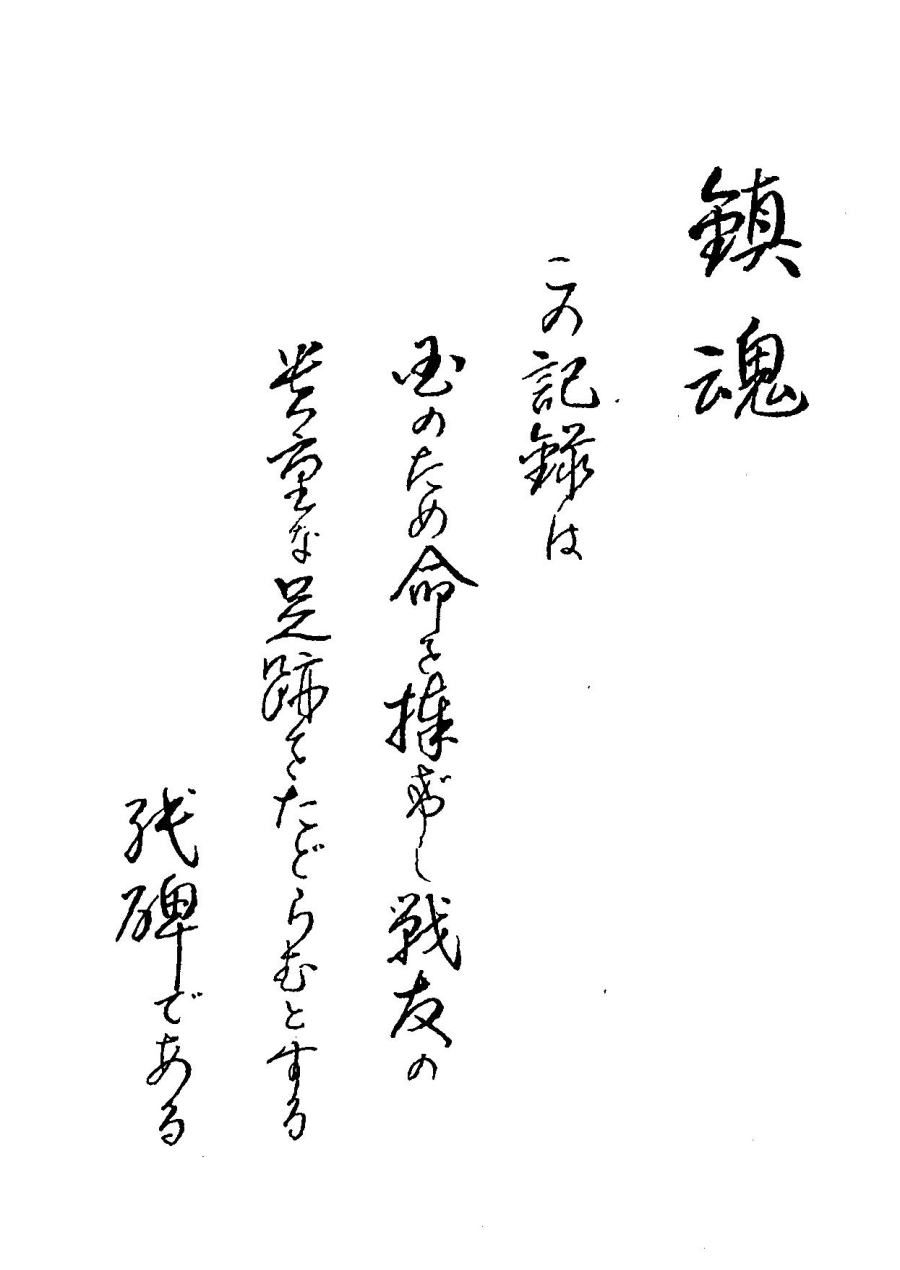 鎮魂
この記録は
国のため命を捧げし戦友の
貴重な足跡をたどらむとする
残碑である